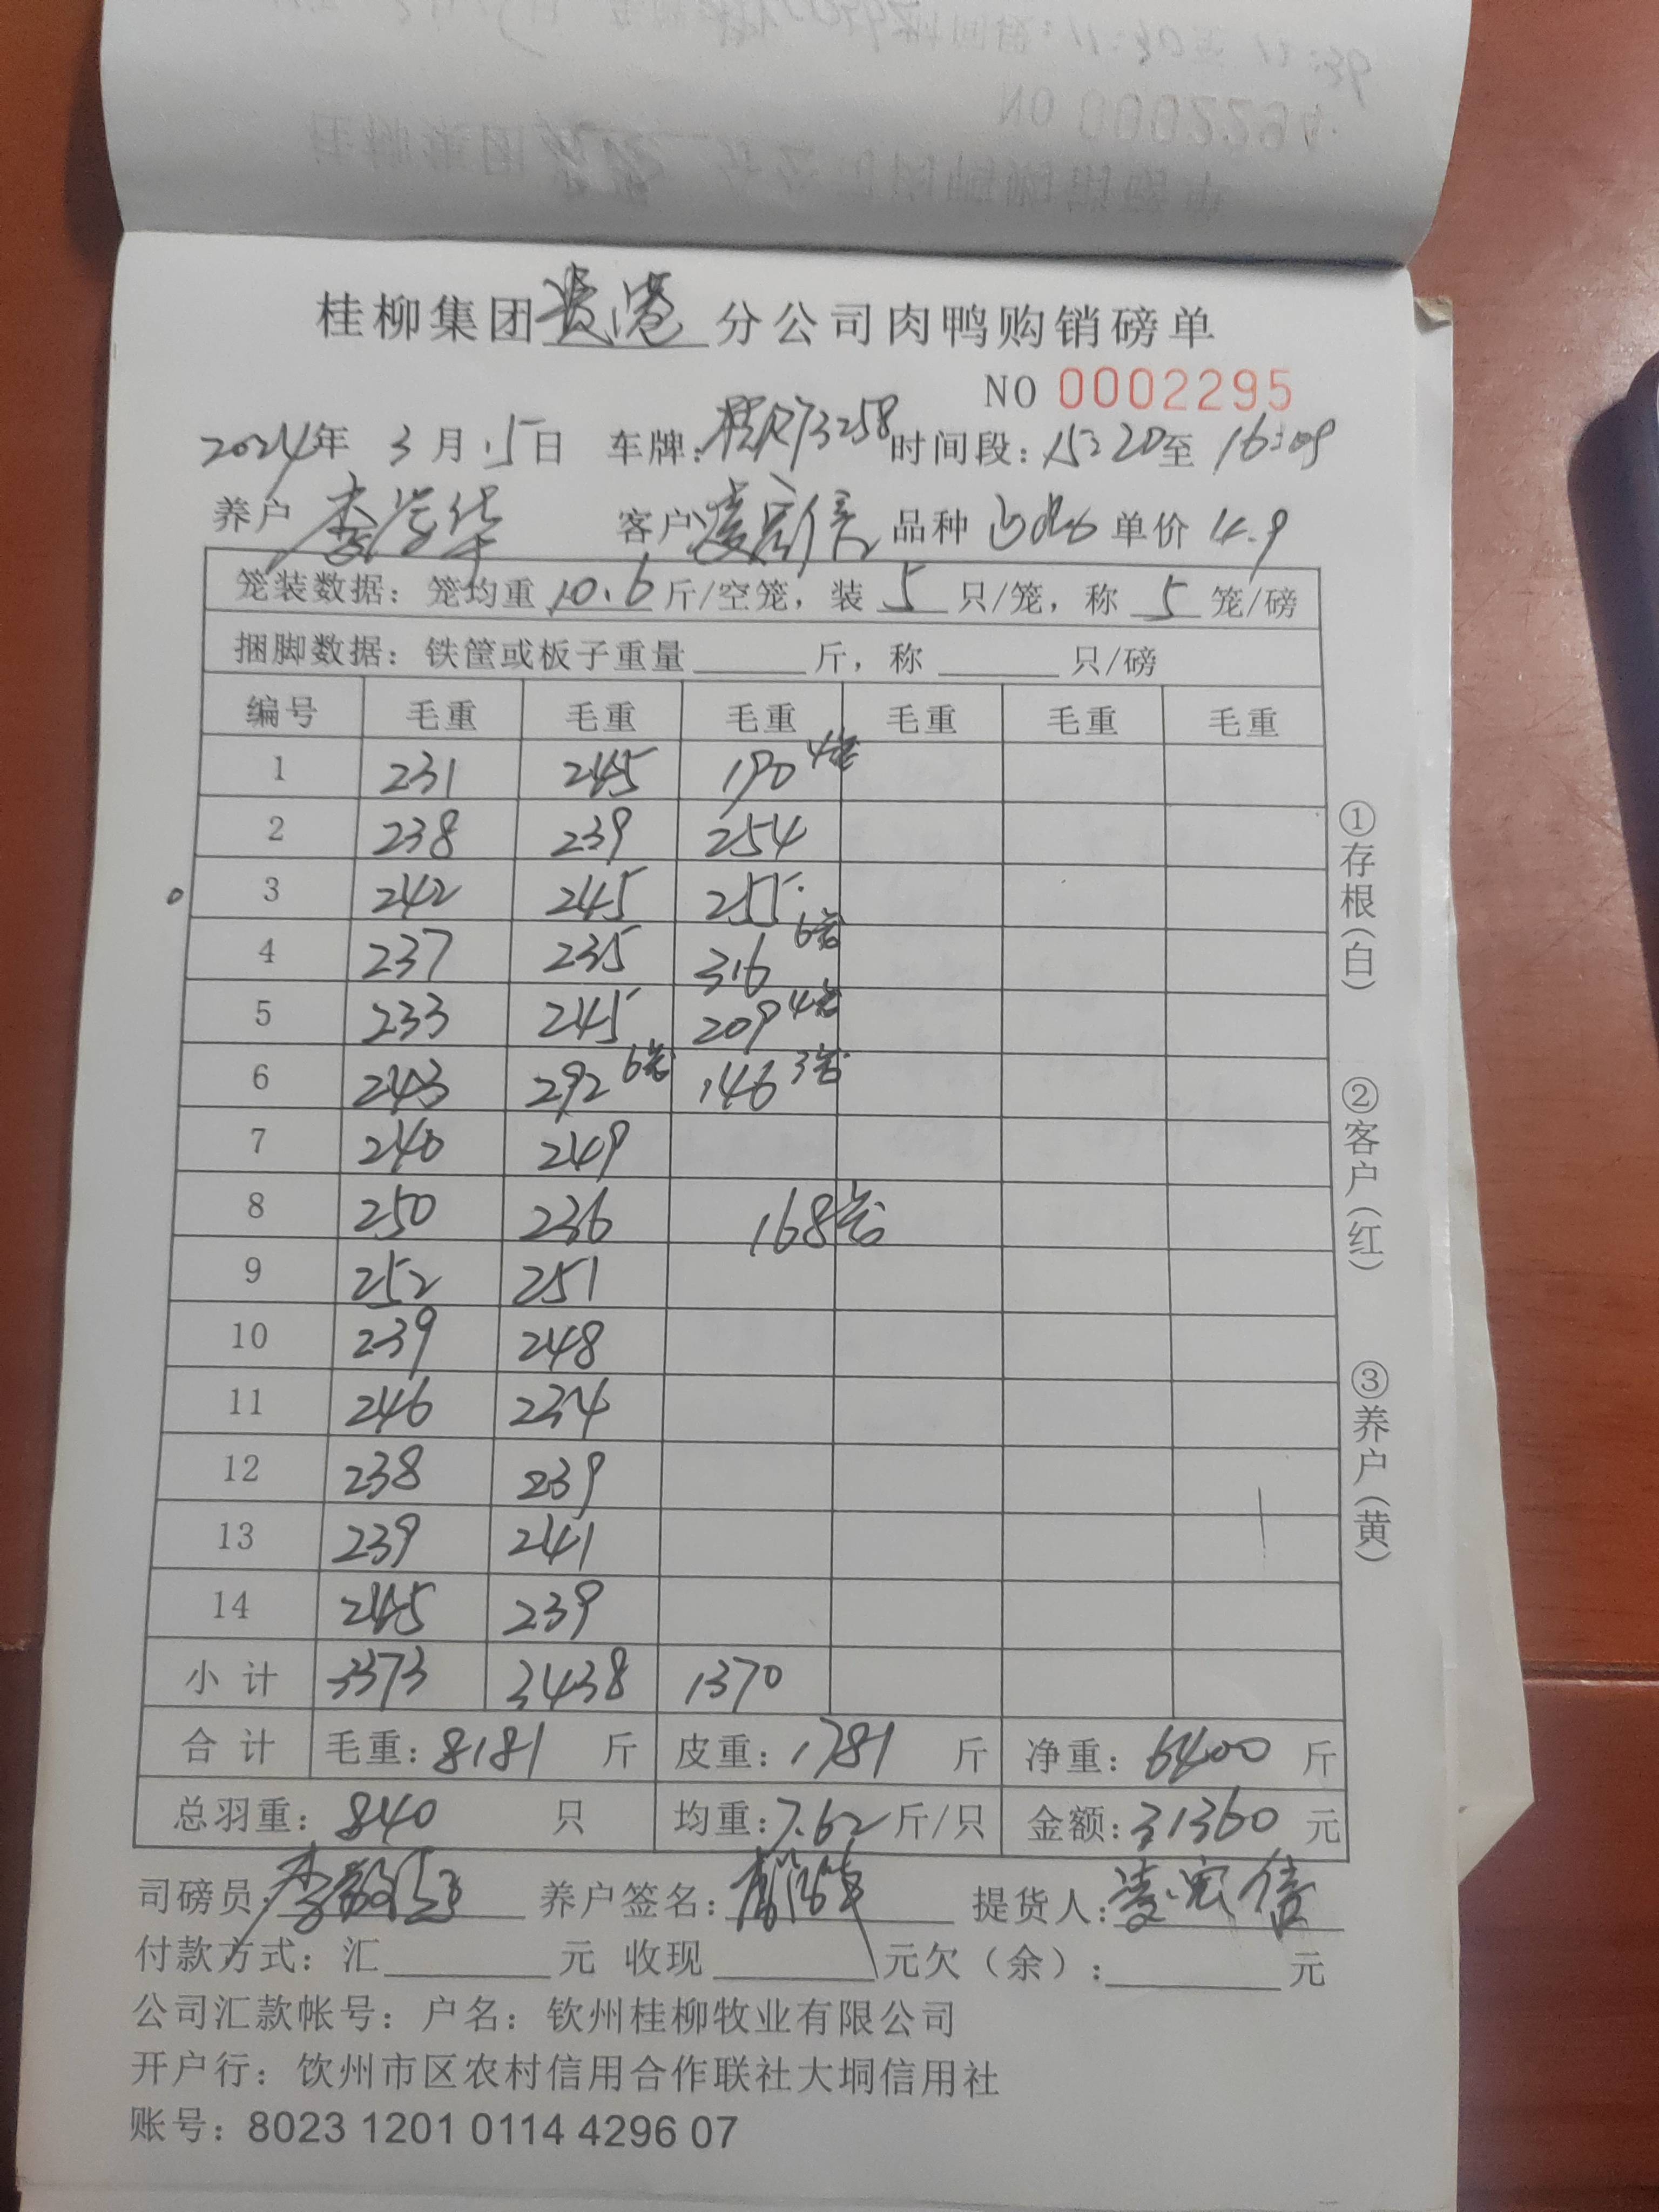 NO 0002294
桂柳集团贵港分公司肉鸭购销磅单
NO 0002295
2024年 3月15日 车牌:桂R73258 时间段:15:20至16:09
养户 李 华 客户 凌宗信 品种 单价 4.9
笼装数据:笼均重 10.6 斤/空笼,装 5 只/笼,称 5 笼/磅
捆脚数据:铁筐或板子重量______斤,称______只/磅
编号 毛重 毛重 毛重 毛重 毛重 毛重
1 231 245 190 4笼
2 238 239 254
3 242 245 255
4 237 235 316 6笼
5 233 245 209 4笼
6 243 292 6笼 146 3笼
7 240 249
8 250 236 168笼
9 252 251
10 239 248
11 246 234
12 238 239
13 239 241
14 245 239
小计 3373 3438 1370
合计 毛重:8181 斤 皮重:1781 斤 净重:6400 斤
总羽重:840 只 均重:7.62斤/只 金额:31360 元
司磅员:李 养户签名: 提货人:凌宗信
付款方式:汇______元 收现______元欠(余):______元
公司汇款帐号:户名:钦州桂柳牧业有限公司
开户行:饮州市区农村信用合作联社大垌信用社
账号:8023 1201 0114 4296 07
①存根(白) ②客户(红) ③养户(黄)